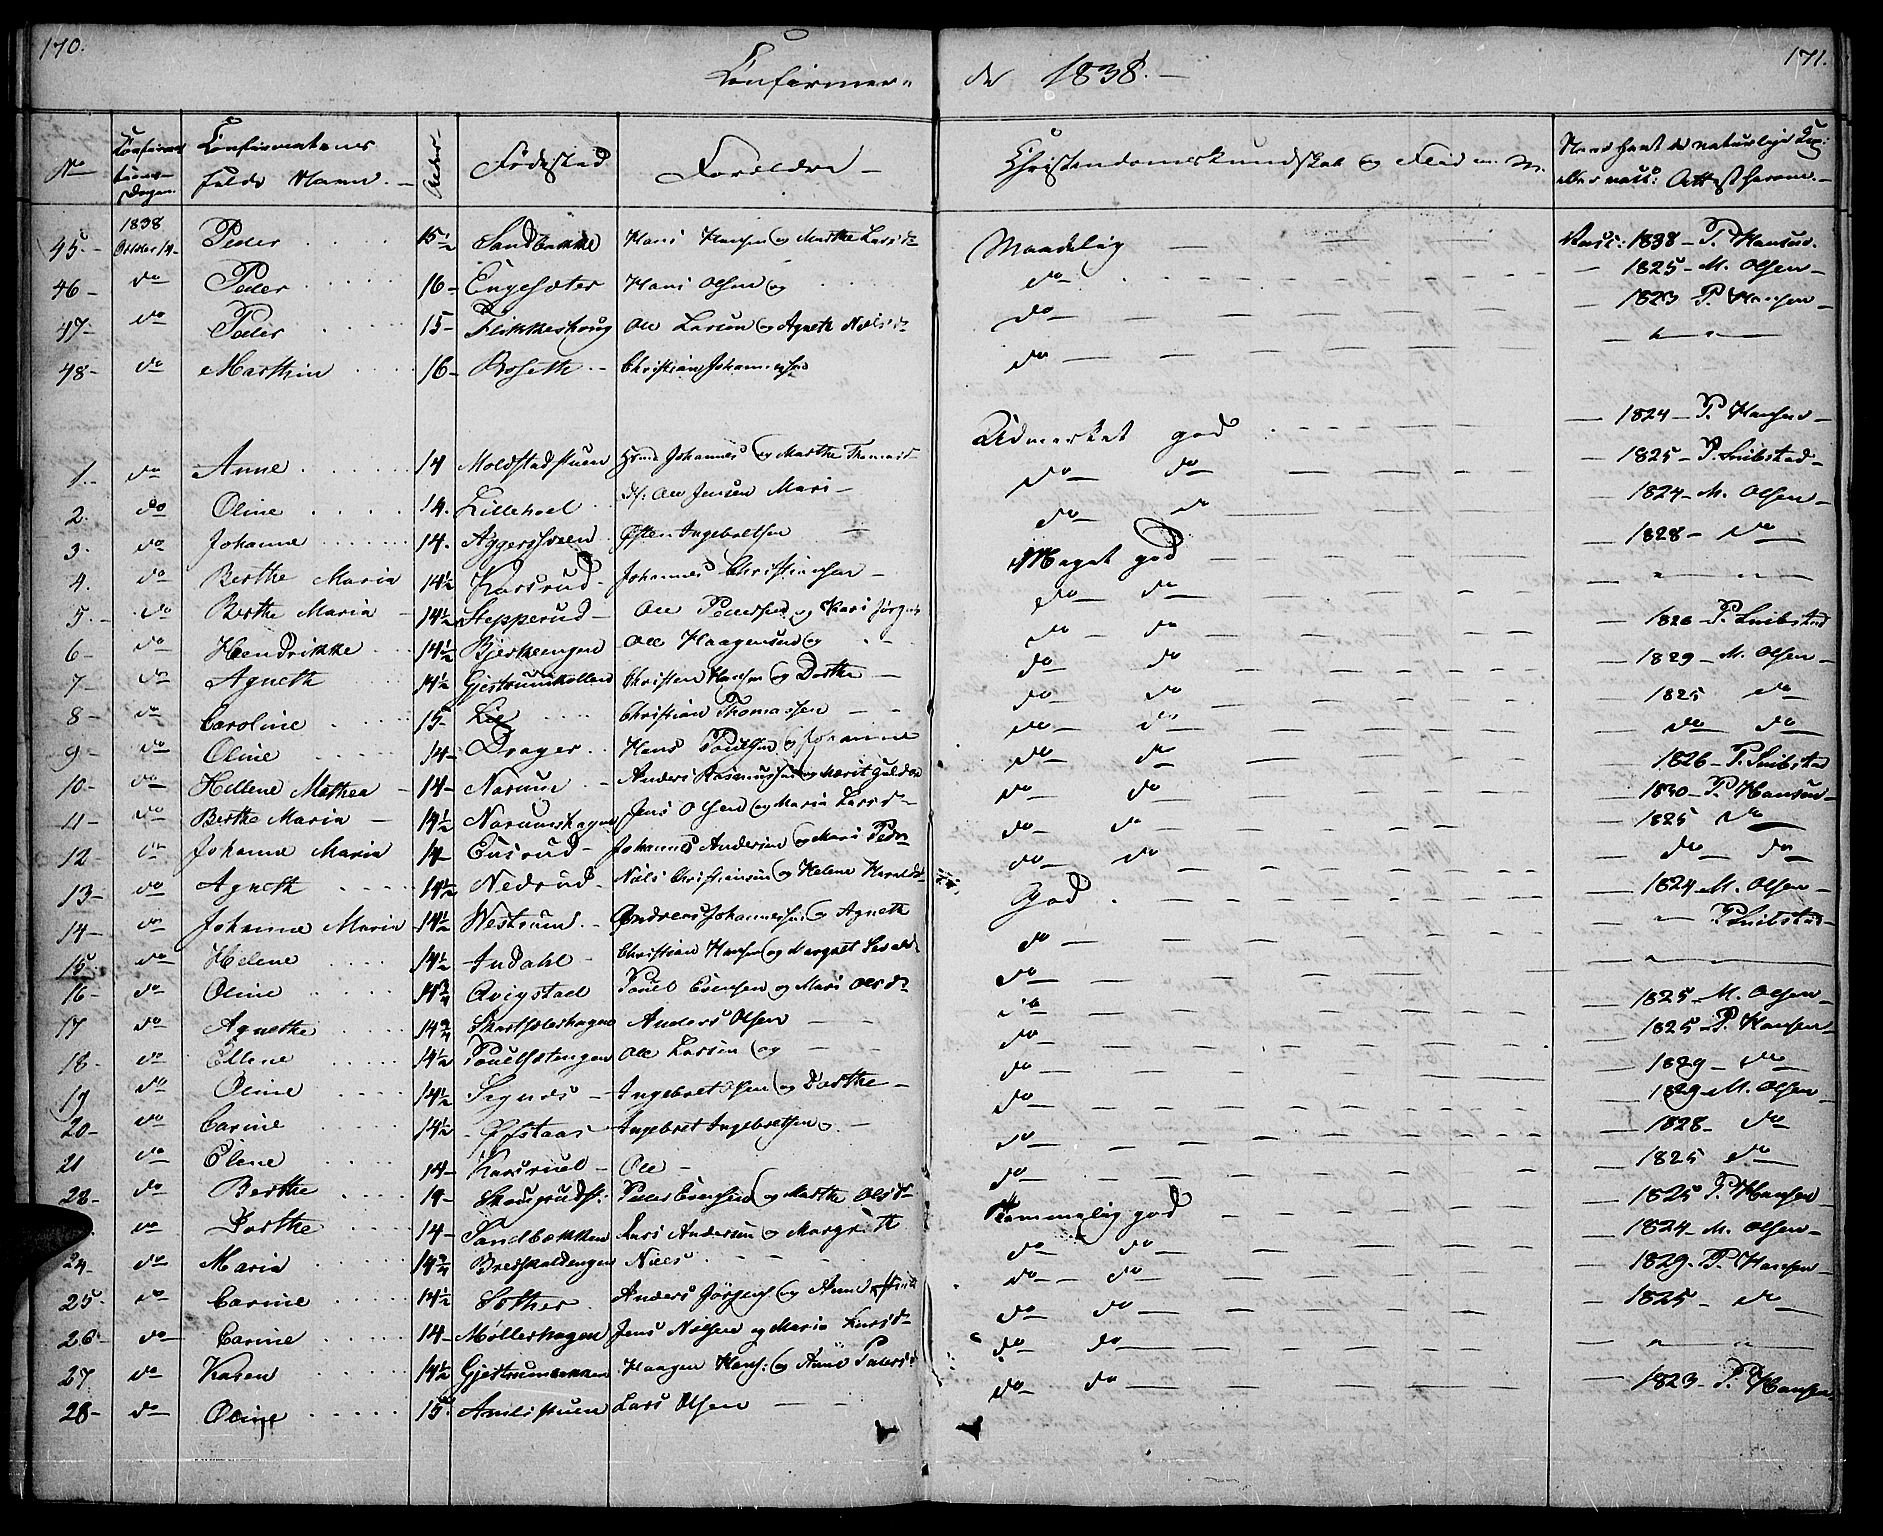 170.
171.
Confirmer-
de 1838.
No
Confirmations Dagen
Confirmatens fulde Navn.
Alder
Fødestæd
Forældre
Christendomskundskab og Flid
Naar havt de naturlige Kop: eller vacc: Attest herom.
45 1838 October 14 Peder 15½ Sandbakke Hans Hansen og Marthe Larsd. Maadelig Vacc: 1838 P. Hansen
46 do Peder 16 Engesæter Hans Olsen og do 1825 M. Olsen
47 do Peder 15 Flikkeshoug Ole Larsen og Agnethe Nielsd. do 1823 P. Hansen
48 do Marthin 16 Roseth Christian Johannesen do
1. do Anne 14 Moldstadstuen Johannes og Marthe Thomasd. Udmærket god 1824 P. Hansen
2. do Oline 14. Lillehoel Ole Jensen Mari do do 1825 P. Snibstad
3. do Johanne 14. Aggershoen Østen Ingebretsen do do 1824 M. Olsen
4. do Berthe Maria 14½ Karsrud Johannes Christiansen Meget god 1828 do
5. do Berthe Maria 14½ Stepperud Ole Pedersen og Kari Jørgens do do
6 do Hendrikke 14½ Bjerkeengen Ole Haagensen og do do 1826 P. Snibstad
7 do Agneth 14½ Gjestrumkolland Christen Hansen og Dorthe do do 1829 M. Olsen
8 do Caroline 15 Lie Christian Thomassen do do 1825 do
9 do Oline 14 Drager Hans Poulsen og Johanne do do do do
10 do Hellene Mathea 14 Narum Anders Rasmussen og Marit Guld do do 1826 P. Snibstad
11 do Berthe Maria 14½ Narumshagen Jens Olsen og Maria Larsd. do do 1830 P. Hansen
12 do Johanne Maria 14 Eusrud Johannes Andersen og Mari Ped. do do 1825 do
13 do Agneth 14½ Nedrud Niels Christiansen og Helene Haralds do do do do
14 do Johanne Maria 14½ Westrum Andreas Johannessen og Agneth God 1824 M. Olsen
15 do Helene 14½ Indahl Christian Hansen og Margret do P. Snibstad
16 do Oline 14¾ Qvigstad Pouel Evensen og Mari Olsd. do
17 do Agnethe 14¾ Anders Olsen do 1825 M. Olsen
18 do Ellene 14½ Pouelsætengen Ole Larsen og do 1825 P. Hansen
19 do Oline 14½ Segnes Ingebret Olsen og Dorthe do 1829 do
20 do Carine 14½ Øfstaas Ingebret Ingebretsen do 1829 M. Olsen
21 do Elene 14 Karsrud Ole do 1828 do
22 do Berthe 14 Skougrudst: Peder Evensen og Marthe Olsd. do 1825 do
do Dorthe 14 Sandbækken Lars Andersen og Margrith Temmelig god 1825 P. Hansen
24 do Maria 14¾ Bredskaldengen Niels do do 1824 M. Olsen
25 do Carine 14½ Sother Anders Jørgens og Anne do do 1829 P. Hansen
26 do Carine 14 Møllerhagen Jens Nielsen og Maria Larsd. do do 1825 do
27 do Karen 14½ Haagen Hans: og Anne do do
28 do Oline 15 Amlistuen Lars Olsen do do 1823 P. Hansen